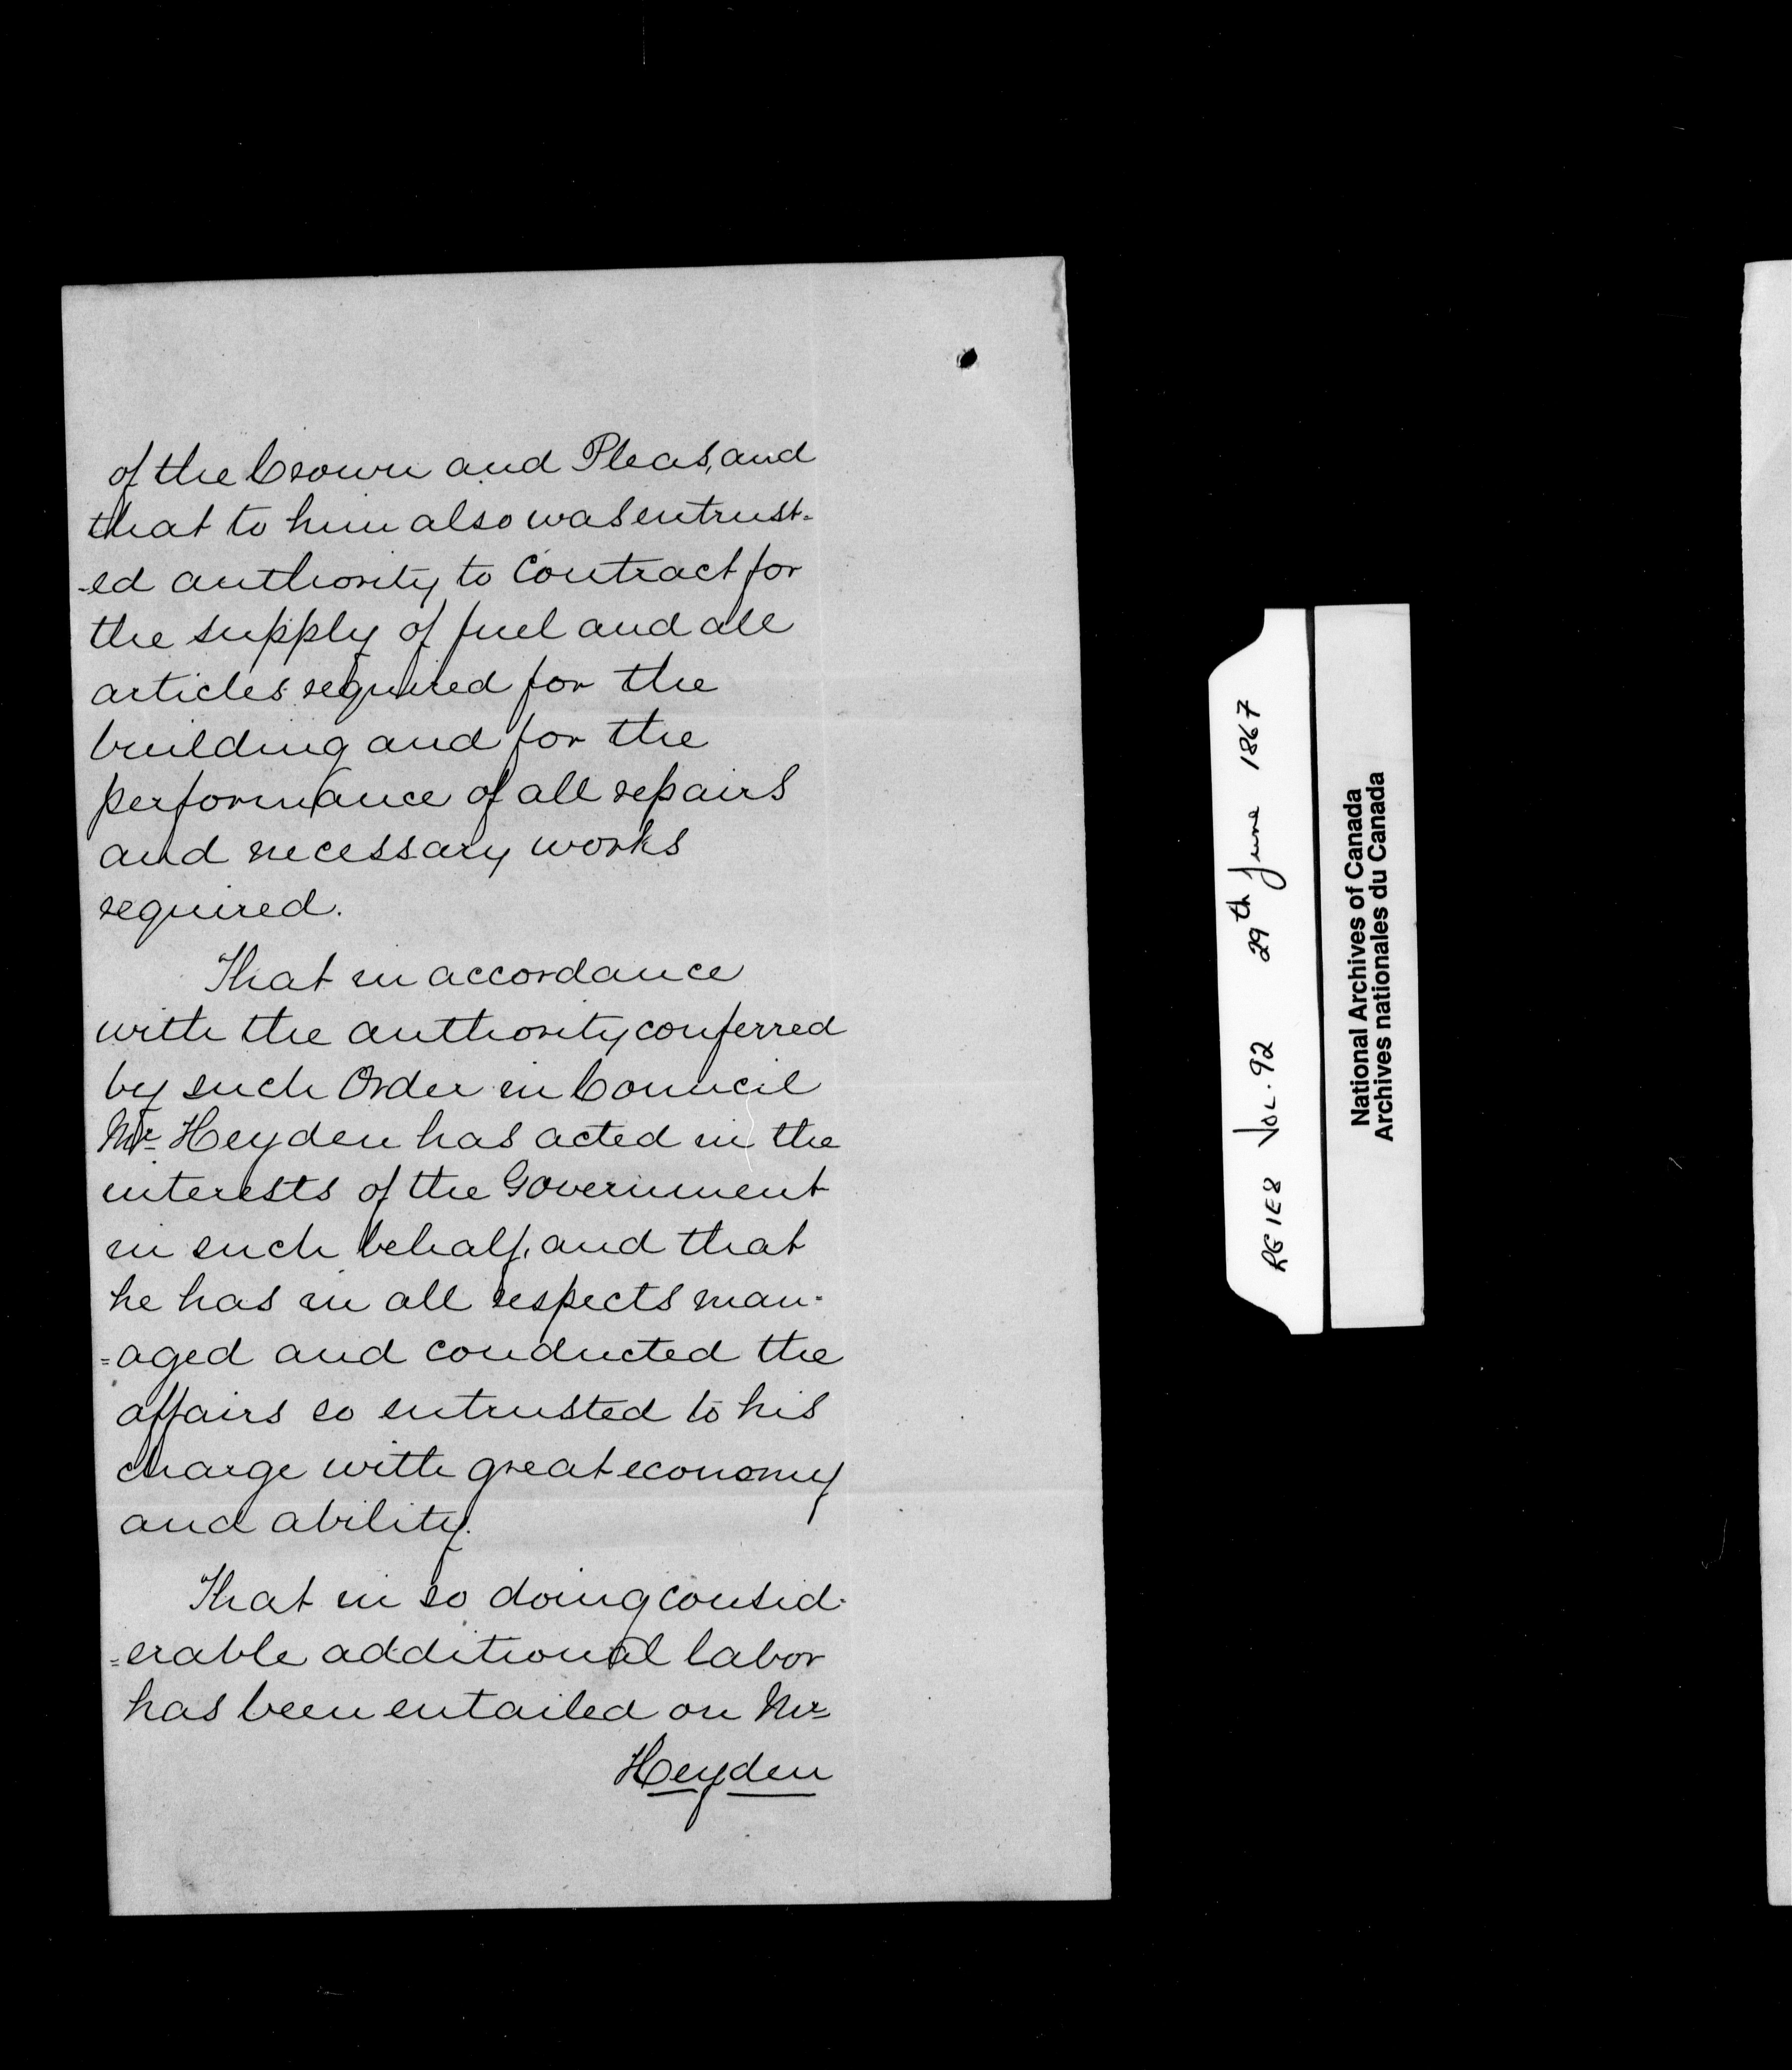 of the Crown and Pleas, and
that to him also was entrust-
-ed authority to Contract for
the supply of fuel and all
articles required for the
building and for the
performance of all repairs
and necessary works
required.
That in accordance
with the authority conferred
by such Order in Council
Mr Heyden has acted in the
interests of the Government
in such behalf, and that
he has in all respects man-
=aged and conducted the
affairs so entrusted to his
charge with great economy
and ability.
That in so doing consid-
=erable additional labor
has been entailed on Mr
Heyden
RG 1 E8 Vol. 92 29th June 1867
National Archives of Canada
Archives nationales du Canada